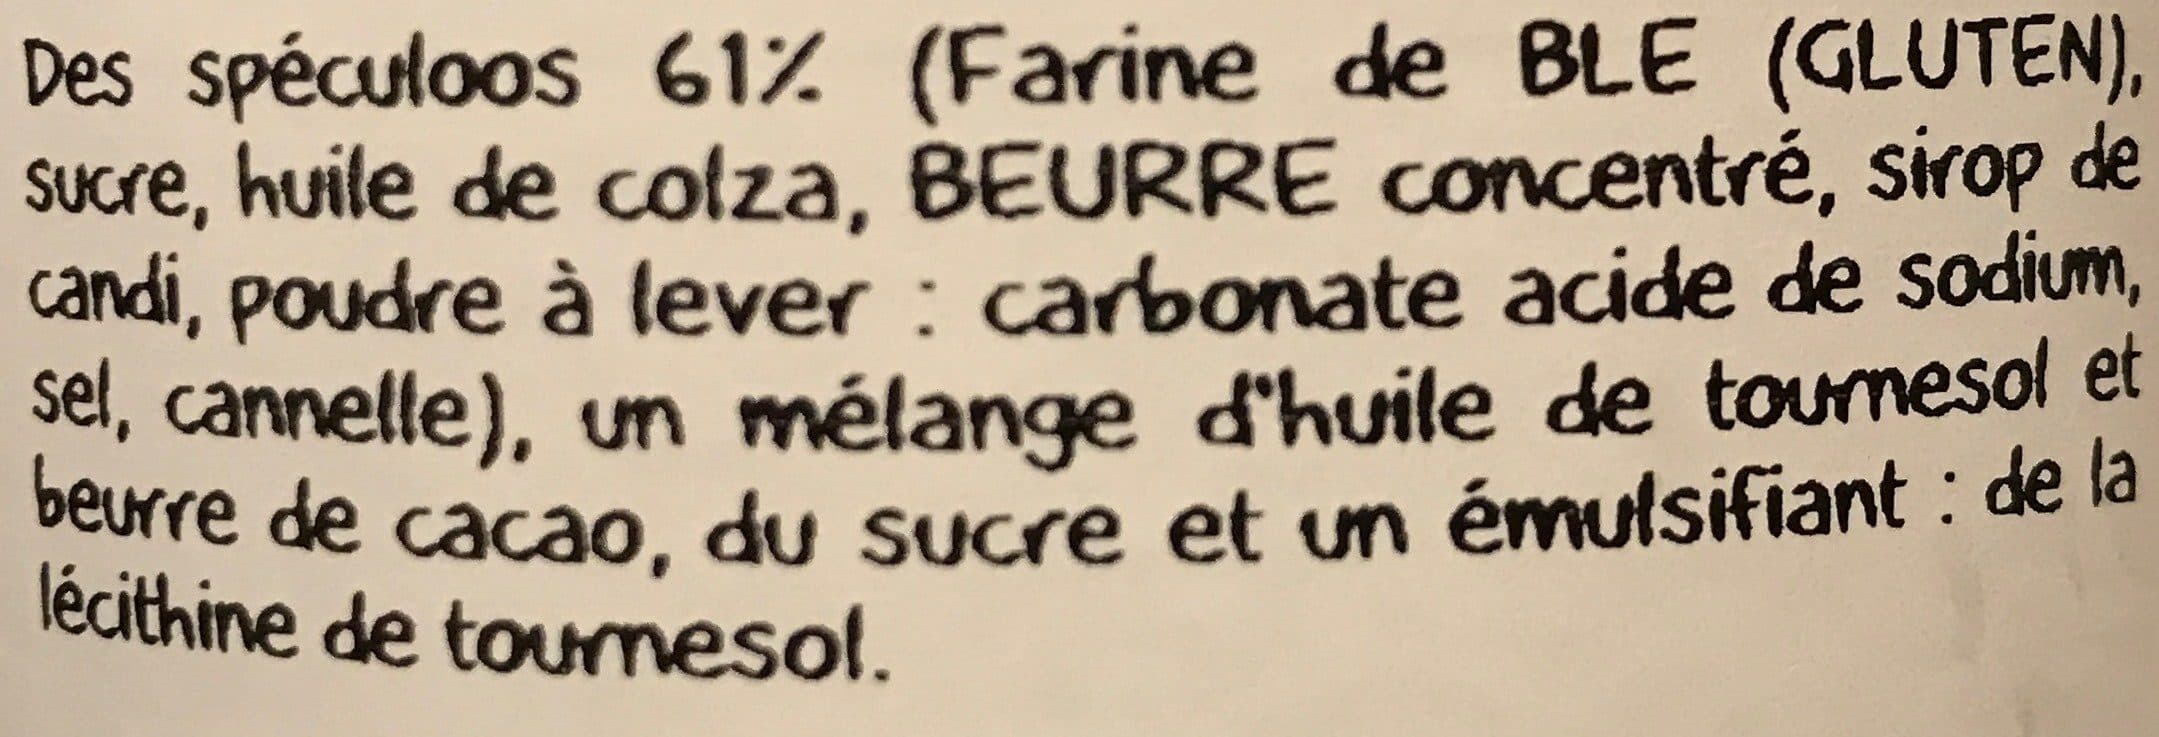 Des spéculoos 61% (Farine de BLE (GLUTEN),
sucre, huile de colza, BEURRE concentré, sirop de
candi, poudre à lever : carbonate acide de sodium,
sel, cannelle), un mélange d'huile de tournesol et
beurre de cacao, du sucre et un émulsifiant : de la
lécithine de tournesol.